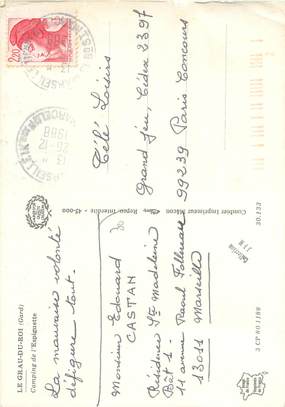 LE GRAU-DU-ROI (Gard)
Camping de l'Espiguette
La mauvaise volonté
défigure tout.
Monsieur Edouard
CASTAN
Résidence Ste Madeleine
Bât 1 -
11 avenue Raoul Follereau
13011 Marseille
Combier Imprimeur Mâcon
Repro. Interdite - 45-000
30.133
3 CP 80 1189
2,20
MARSEILLE
13
26-12
1988
Télé Loisirs
Grand jeu, Cédex 2397
99239 Paris Concours